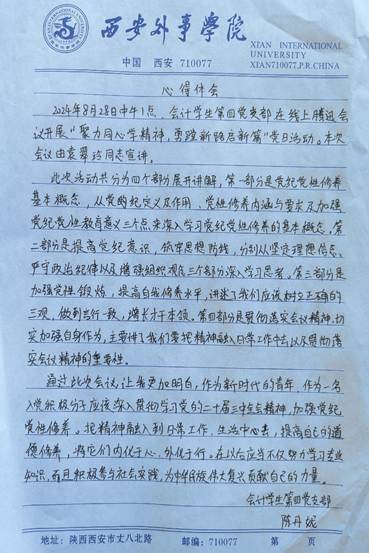 西安外事学院
XI'AN INTERNATIONAL
UNIVERSITY
中国 西安 710077
XIAN710077,P.R.CHINA
心得体会
2024年8月28日中午1点，会计学生第四党支部在线上腾迅会
议开展“聚力同心学精神，勇蹚新路启新篇”党日活动。本次
会议由袁翠玲同志宣讲。
此次活动共分为四个部分展开讲解，第一部分是党纪党性修养
基本概念，从党的纪定义及作用、党性修养内涵与要求及加强
党纪党性教育意义三个点来深入学习党纪党性修养的基本概念。第
二部分是提高党纪意识，筑牢思想防线，分别从坚定理想信念、
严守政治纪律以及增强组织观念三个部分深入学习思考。第三部分是
加强党性锻炼，提高自我修养水平，讲述了我们应该树立正确的
三观，做到言行一致，增长才干本领。第四部分是贯彻落实会议精神，切
实加强自身作为，主要讲了我们要把精神融入日常工作中去以及贯彻落
实会议精神的重要性。
通过此次会议，让我更加明白，作为新时代的青年，作为一名
入党积极分子应该深入贯彻学习党的二十届三中全会精神，加强党纪
党性修养。把精神融入到日常工作、生活中心去，提高自己的道
德修养，将它们内化于心、外化于行。在以后应当不仅努力学习专业
知识，而且积极参与社会实践，为中华民族伟大复兴贡献自己的力量。
会计学生第四党支部
陈丹妮
地址：陕西西安市丈八北路 邮编：710077 第 页